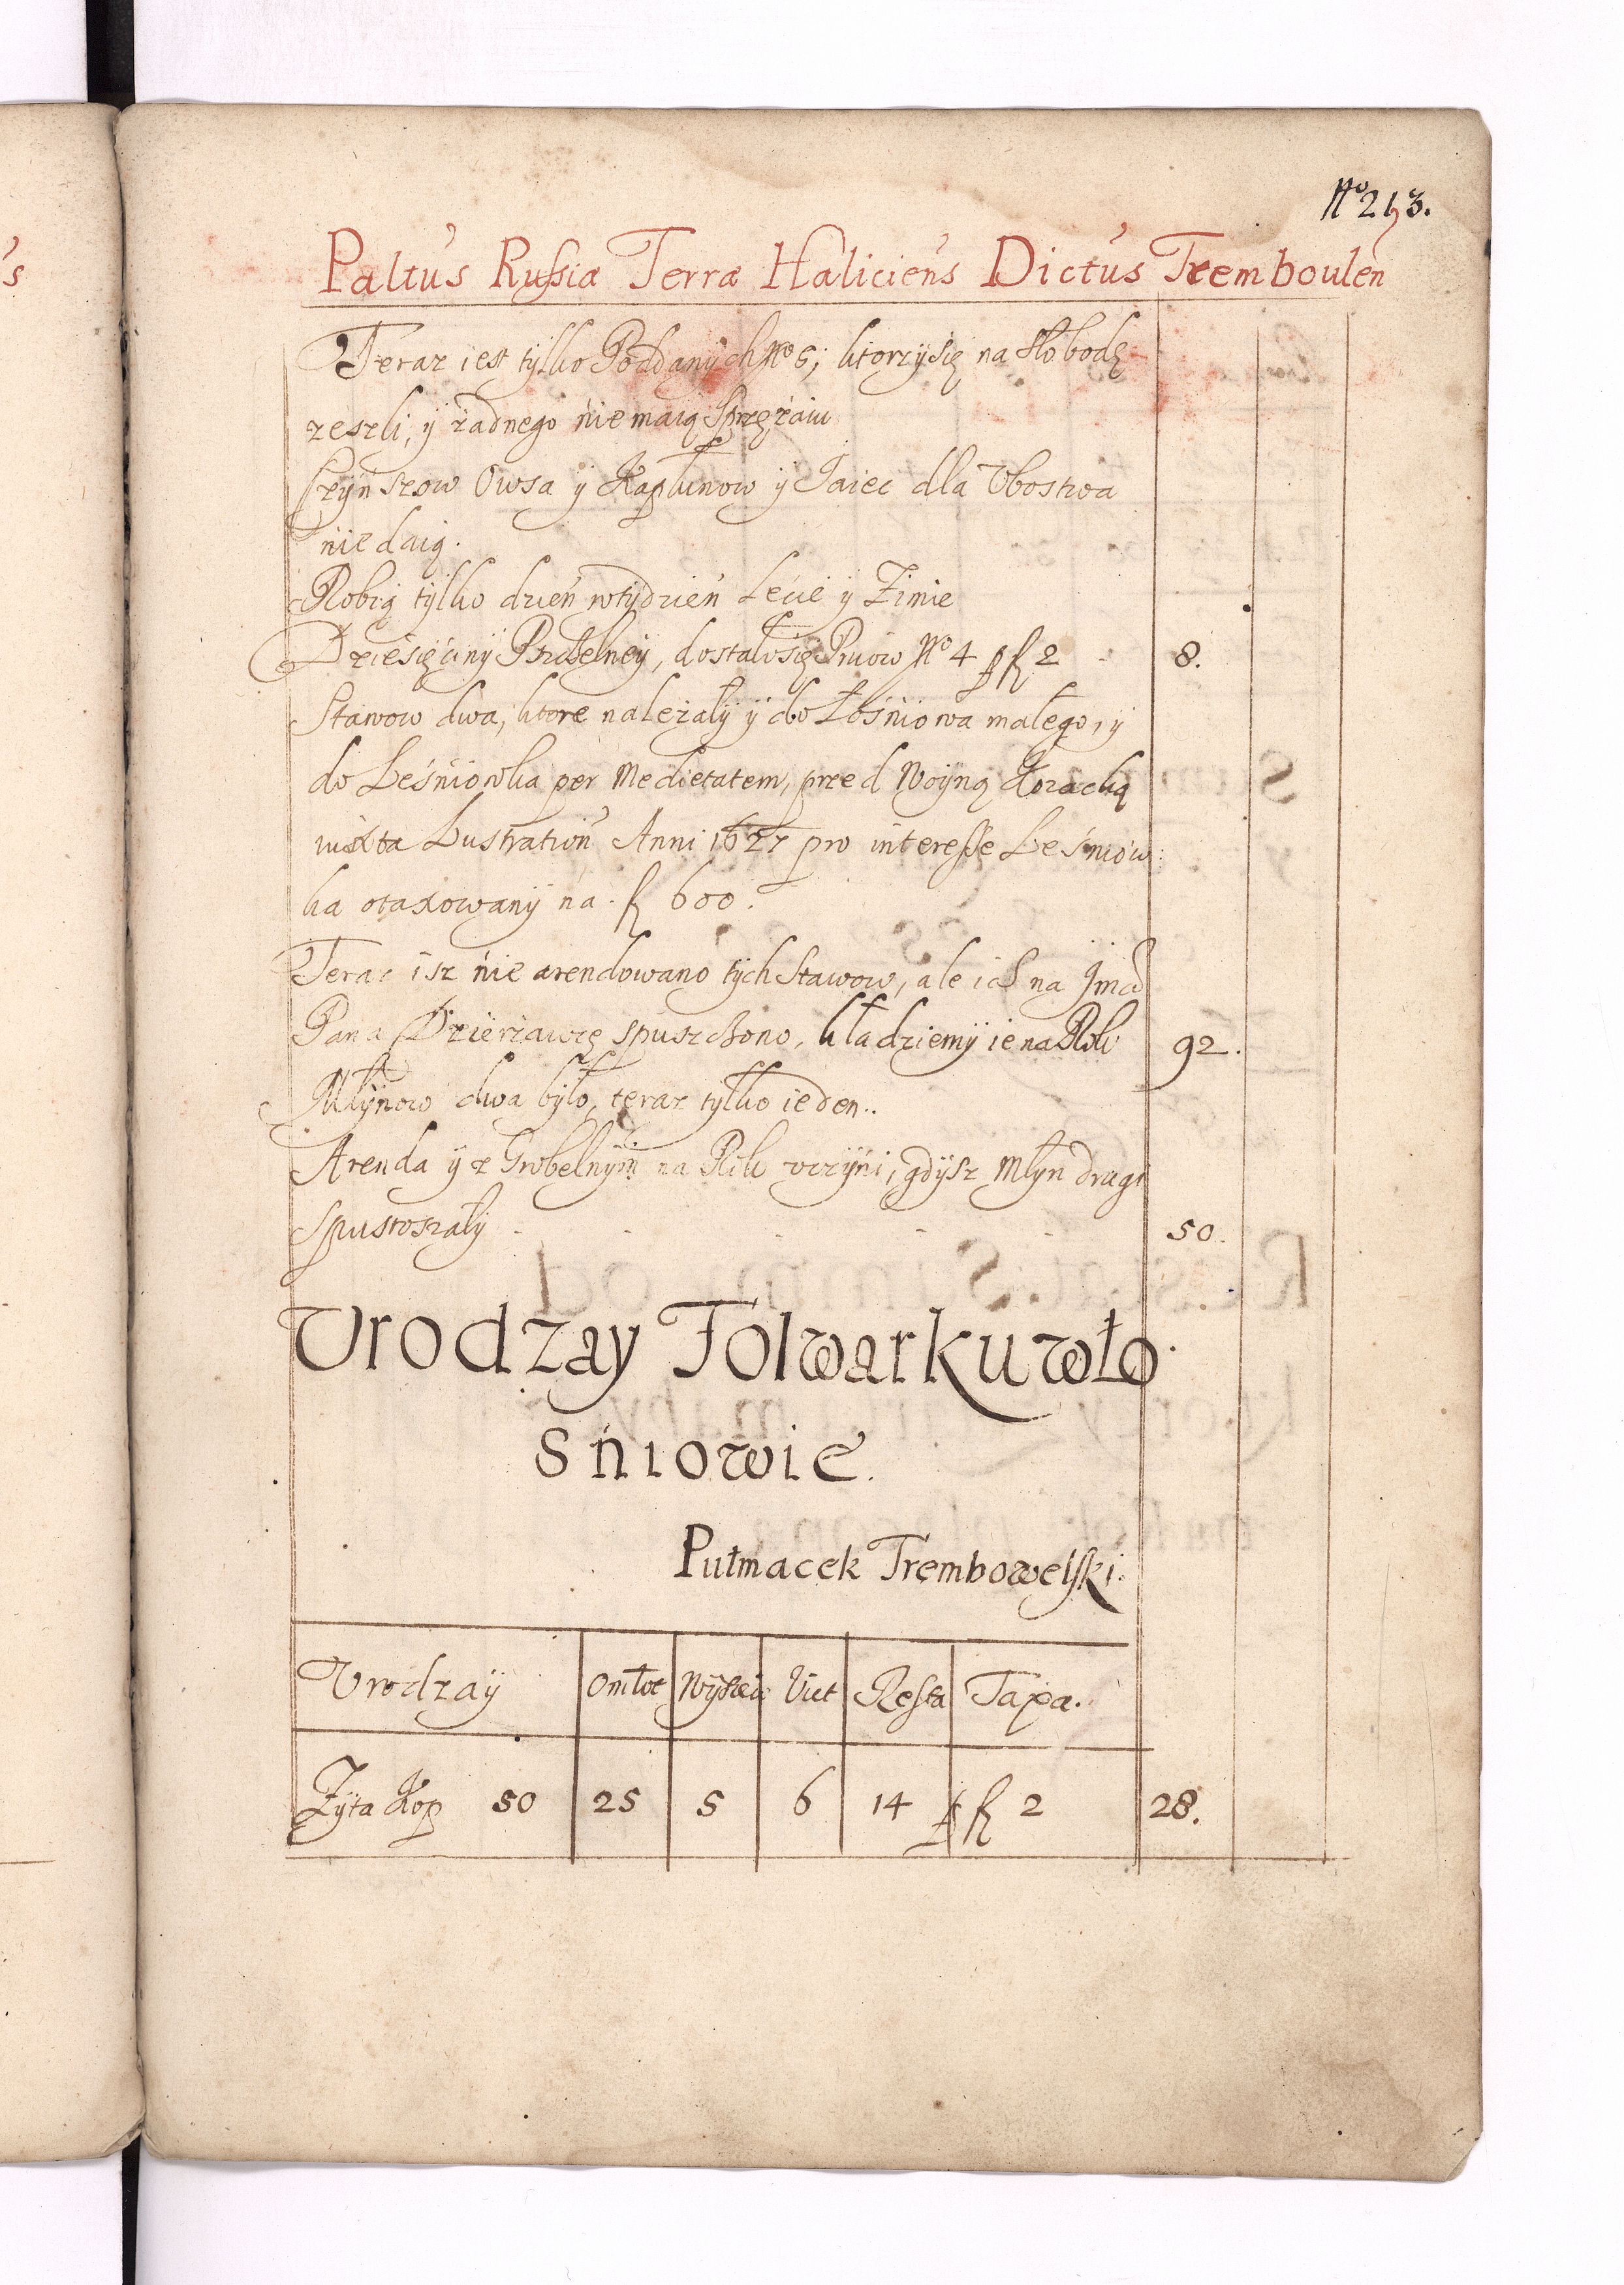 No 213.
Paltus Russia Terræ Haliciens Dictus Tremboulen
Teraz iest tylko Poddanych No 6; ktorzysię na Słobodę
zeszli, ÿ żadnego nie maią Sprzężaiu
Czÿnszow Owsa ÿ Kapłunow ÿ Jaiec dla Vbostwa
nie daią.
Robią tÿlko dzień wtÿdzień Lecie ÿ Zimie
Dziesięcinÿ Pszczelneÿ, dostałosię Pniow No 4 p fl 2 - 8.
Stawow dwa, ktore należałÿ ÿ do Łośniowa małego, ÿ
do Leśniowka per Medietatem, przed Woÿną Kozacką
iuxta Lustration Anni 1627 pro interesse Leśniow:
ka otaxowanÿ na. fl 600.
Teraz isz nie arendowano tÿch Stawow, ale ich na Jmci
Pana Dzierżawcę spuszchono, kładziemÿ ie na Rok 92.
Młÿnow dwa było, teraz tÿlko ieden..
Arenda ÿ z Grobelnÿm na Rok vczÿni, gdÿsz Młÿn drugi
spustoszałÿ - - - - 50.
Vrodzay Folwarku wło
śniowie.
Pułmacek Trembowelski.
Vrodzaÿ Omłot Wÿsiew Vict Resta Taxa.
Zÿta Kop 50 25 5 6 14 p fl 2 28.